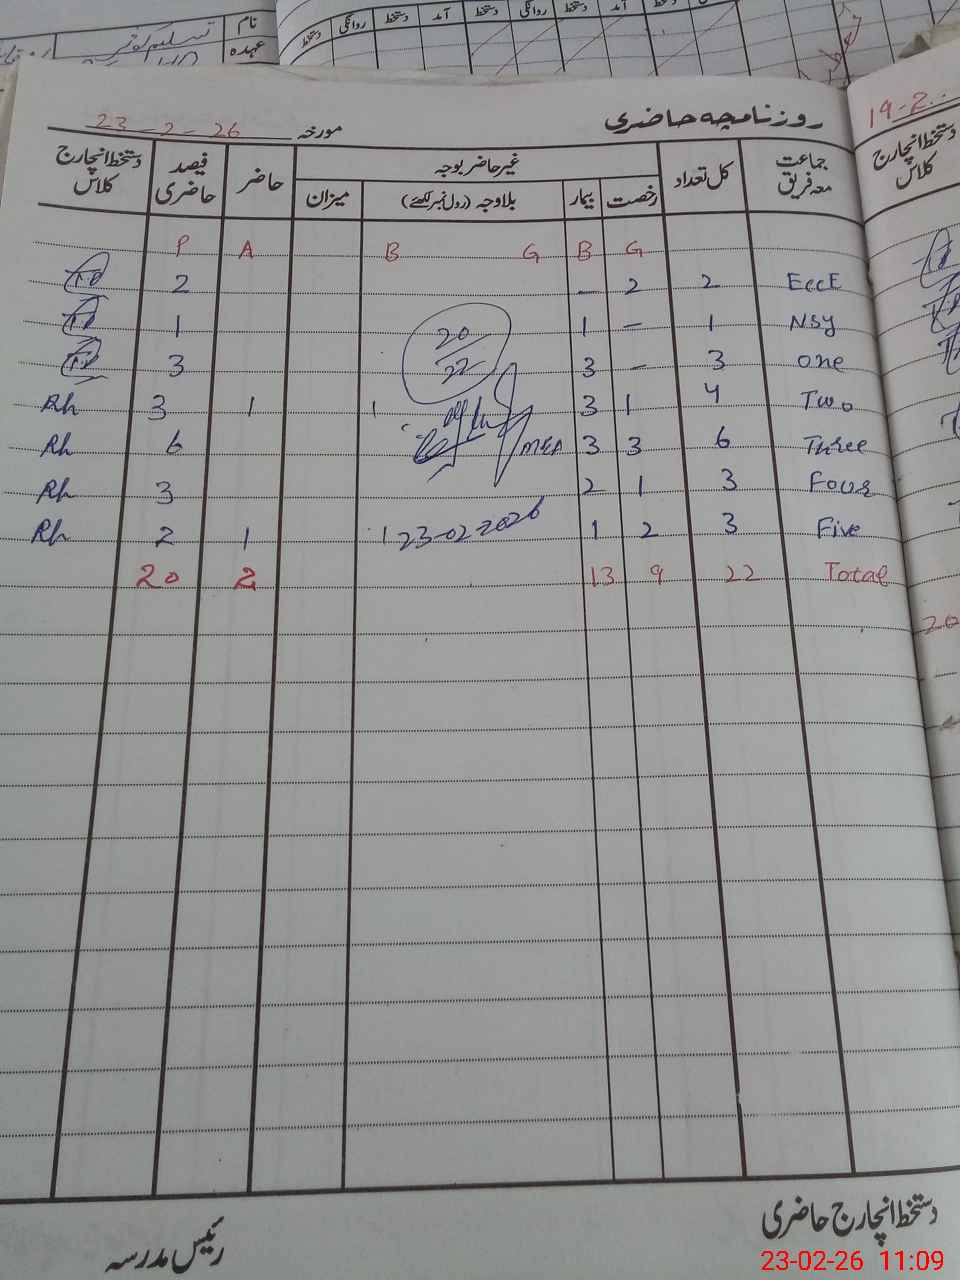 نام
عہدہ
دستخط روانگی دستخط آمد دستخط روانگی دستخط آمد دستخط
19-2
روزنامچہ حاضری
مورخہ 23-2-26
جماعت معہ فریق کل تعداد غیر حاضر بوجہ حاضر فیصد حاضری دستخط انچارج کلاس
رخصت بیمار بلاوجہ (رول نمبر لکھئے) میزان
دستخط انچارج کلاس
P A B G B G
2 - 2 2 EccE
1 1 - 1 NSy
3 3 - 3 one
20/22
Rh 3 1 1 3 1 4 Two
Rh 6 MEA 3 3 6 Three
Rh 3 2 1 3 Four
Rh 2 1 1 23-02-2026 1 2 3 Five
20 2 13 9 22 Total
20
دستخط انچارج حاضری
رئیس مدرسہ
23-02-26 11:09